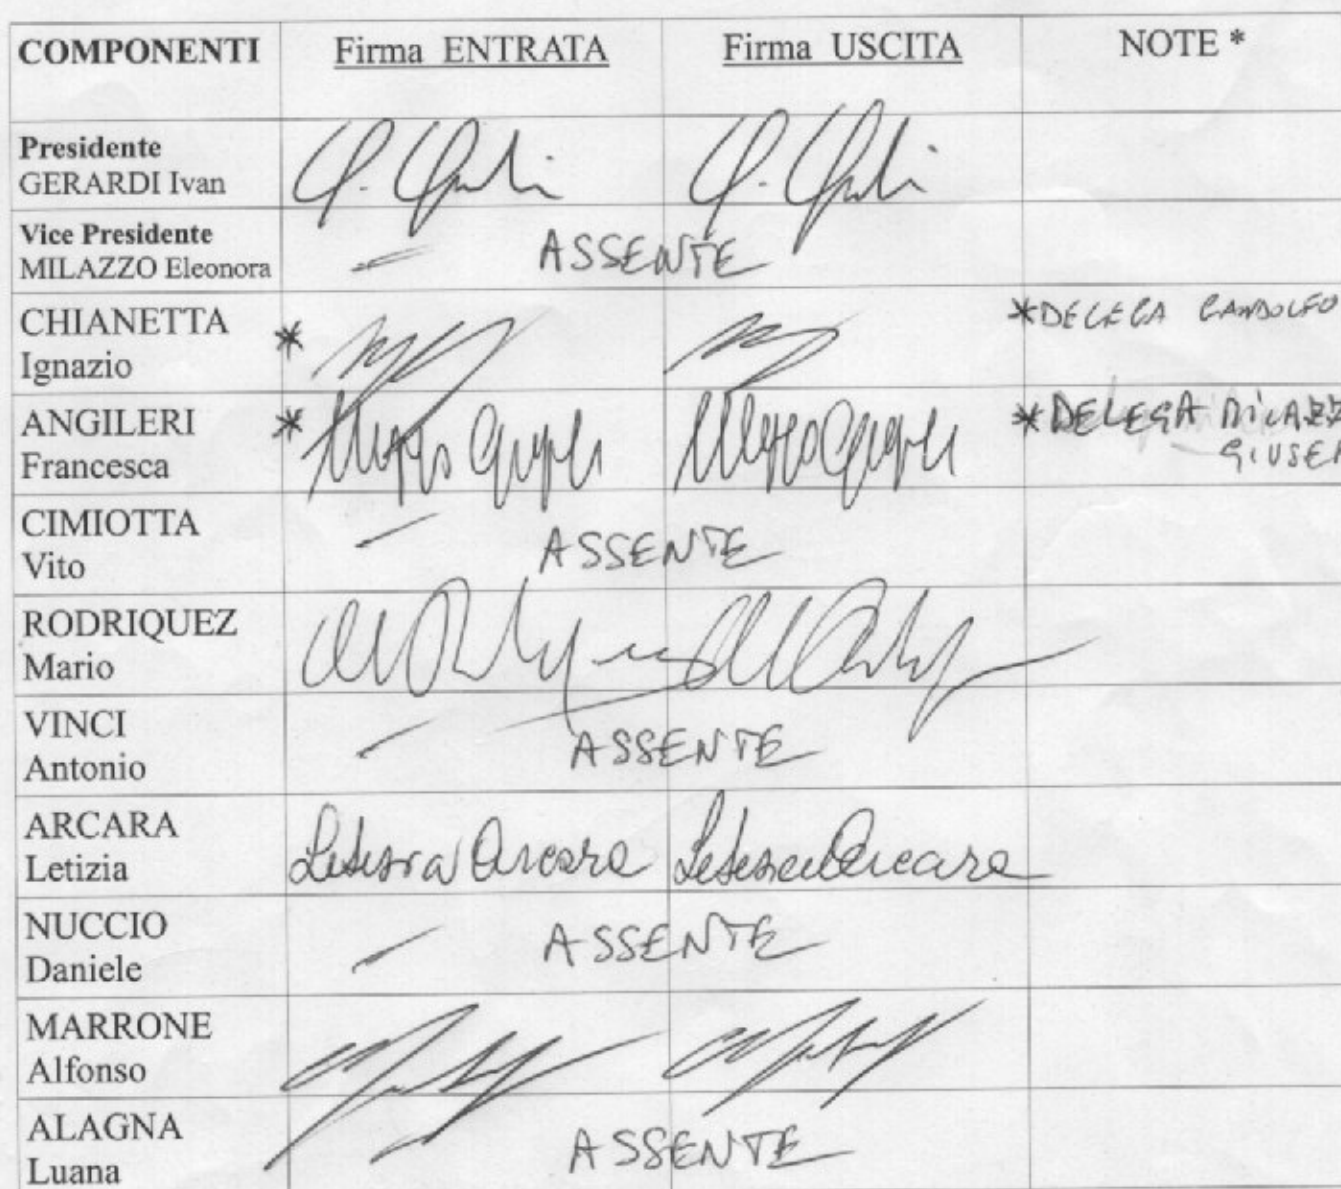 COMPONENTI Firma ENTRATA Firma USCITA NOTE *
Presidente
GERARDI Ivan
Vice Presidente
MILAZZO Eleonora ASSENTE
CHIANETTA * *DELEGA GANDOLFO
Ignazio
ANGILERI * *DELEGA MILAZZ
Francesca GIUSEP
CIMIOTTA
Vito ASSENTE
RODRIQUEZ
Mario
VINCI
Antonio ASSENTE
ARCARA
Letizia Letizia Arcara Letizia Arcara
NUCCIO
Daniele ASSENTE
MARRONE
Alfonso
ALAGNA
Luana ASSENTE